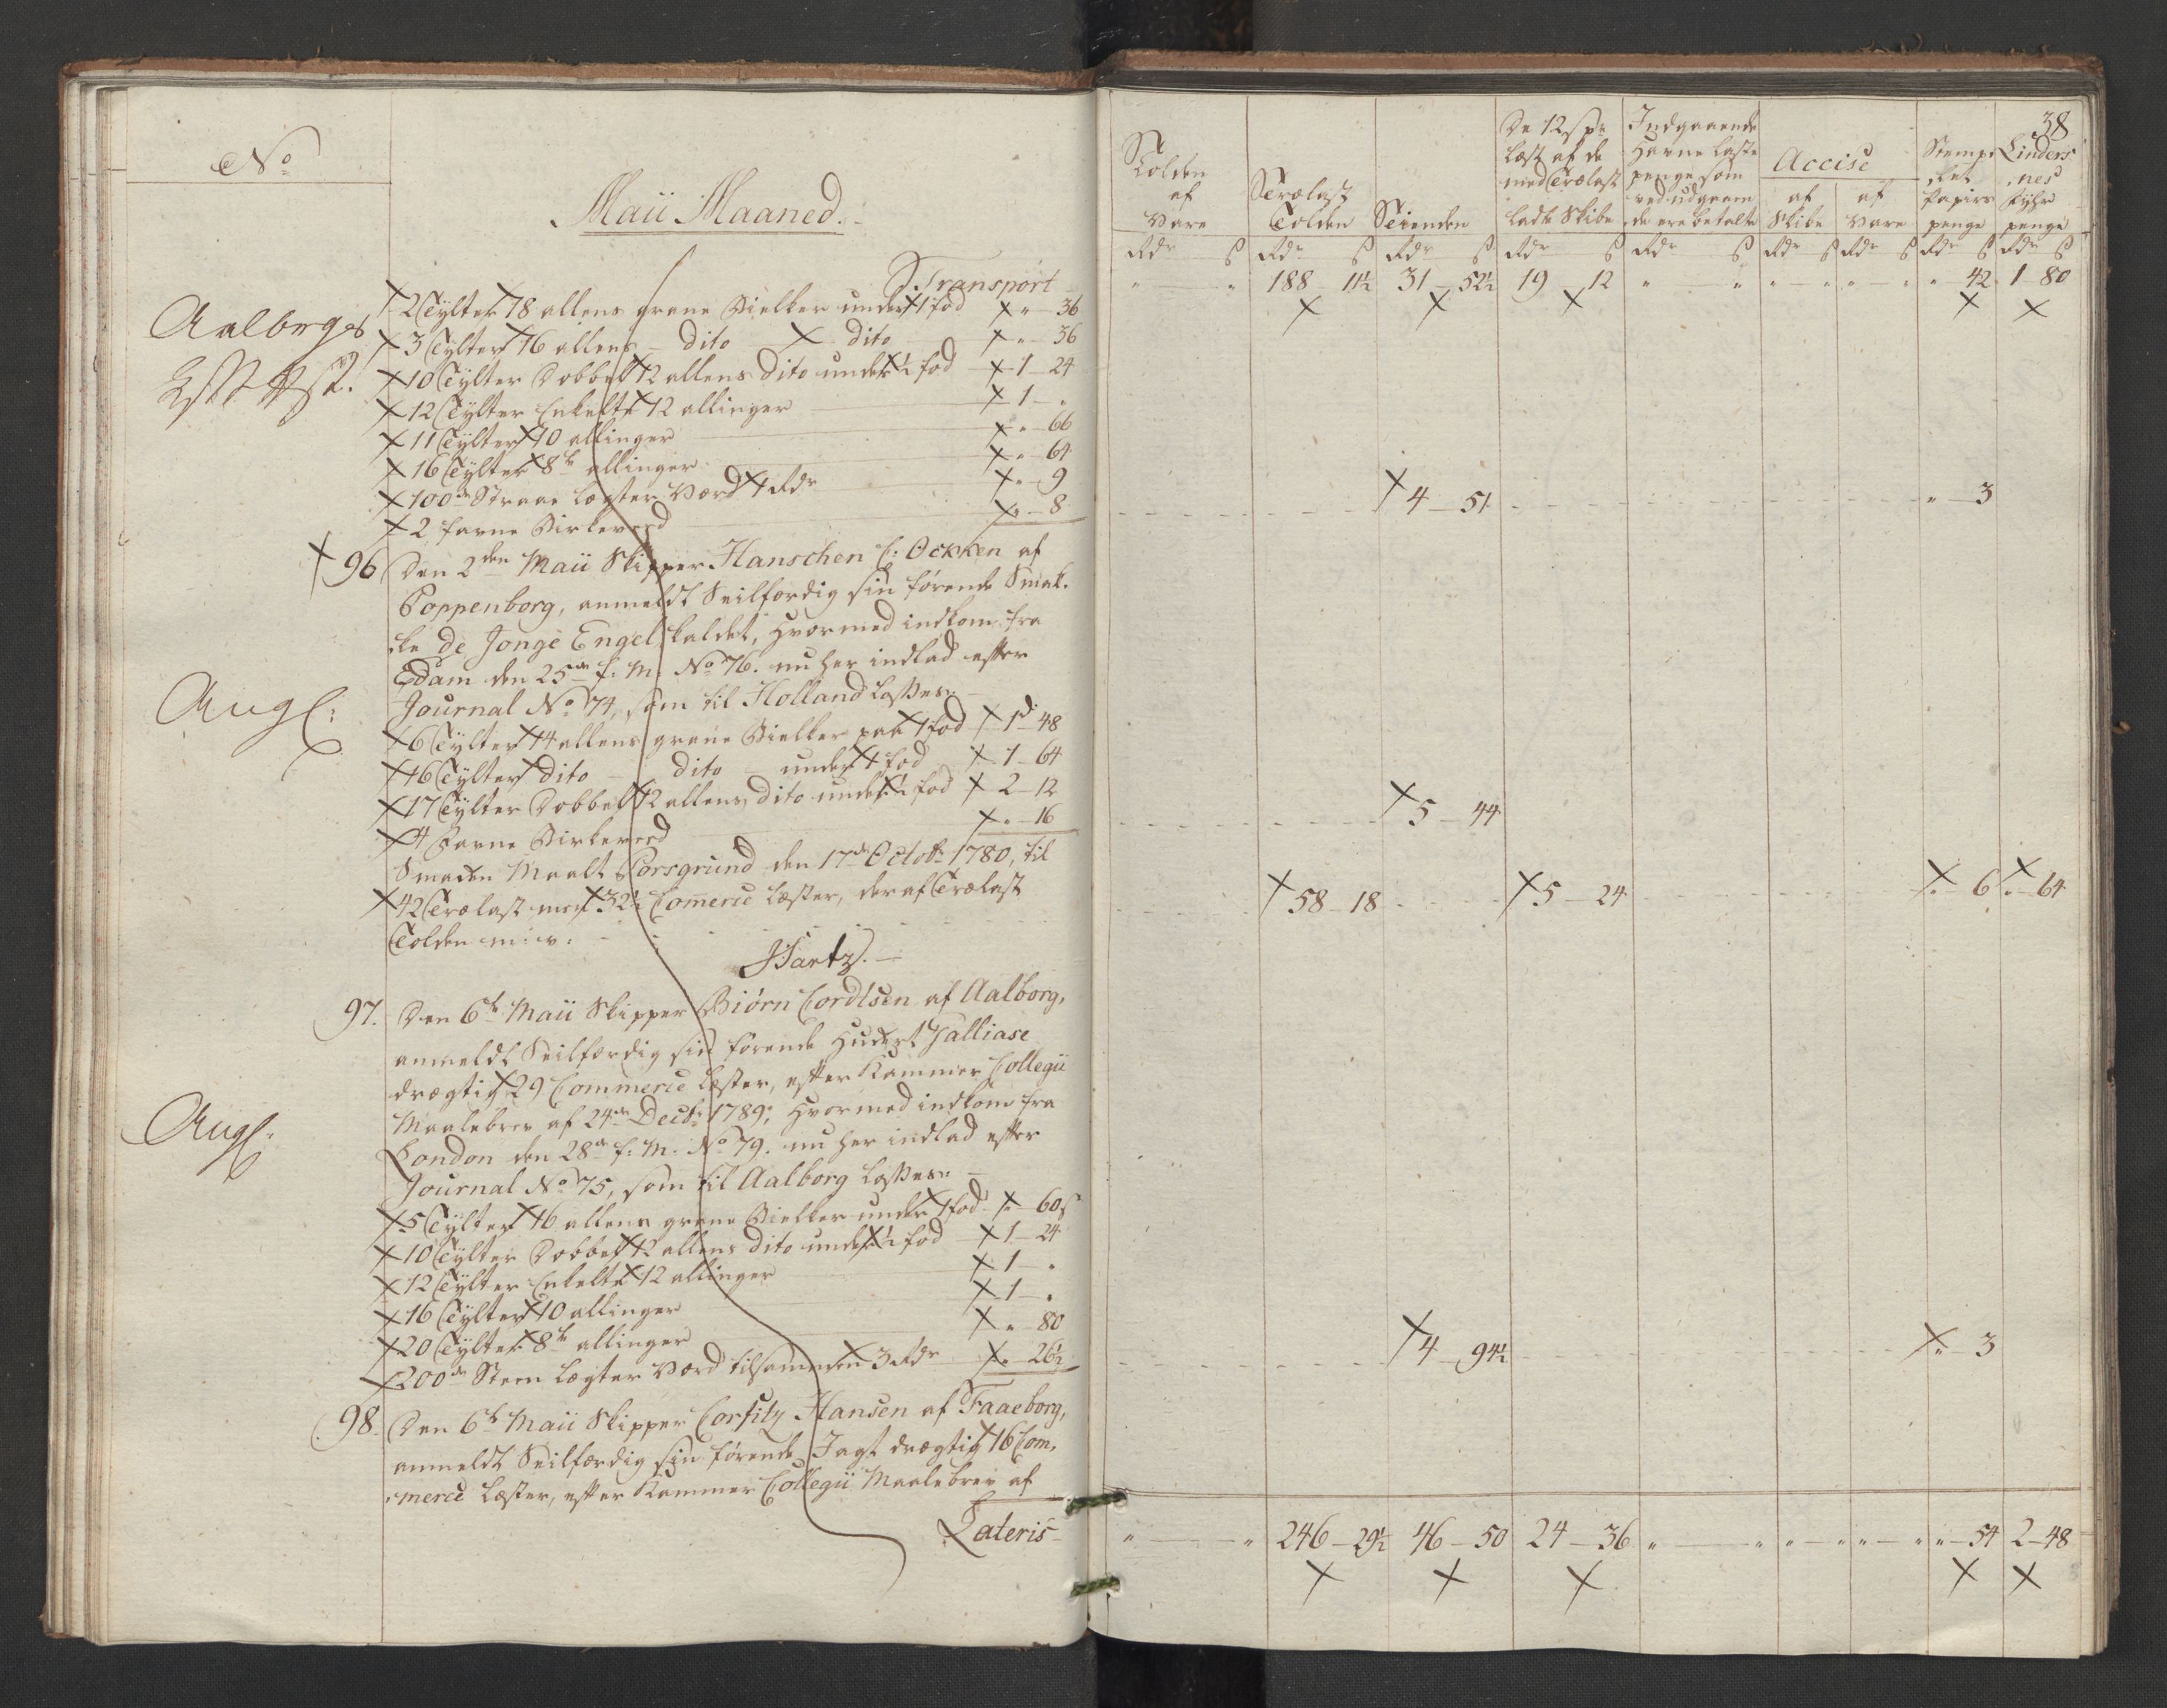 No
Maii Maaned.
Transport
Aalborgs
2 Tylter 18 allens grane Bielker under 1 fod " 36
3 Tylter 16 allens - dito - dito " 36
10 Tylter Dobbelt 12 allens dito under ½ fod 1 24
12 Tylter Enkelte 12 allinger 1 "
11 Tylter 10 allinger " 66
16 Tylter 8te allinger " 64
100de Straae Lægter Værd 1 Rdr " 9
2 farne Birkeved " 8
96 Den 2den Maii Skipper Hanschen C: Ockken af
Poppenborg, anmeldt Seilfærdig sin førende Smak-
ke de Jonge Engel kaldet, hvormed indkom fra
Edam den 25de f. M. No 76. nu her indlad efter
Journal No 74, som til Holland losses.
Angl:
6 Tylter 14 allens grane Bielker paa 1 fod 1d 48
16 Tylter dito - dito - under 1 fod 1 64
17 Tylter Dobbelt 12 allens dito under ½ fod 2 12
4 Farne Birkeved " 16
Smaken Maalt Porsgrund den 17de Octobr 1780, til
42 Trælast mod 32½ Comerce Læster, deraf Trælast
Tolden m: v:
Hartz.
97. Den 6te Maii Skipper Biørn Cordtsen af Aalborg,
anmeldt Seilfærdig sin førende Hukert Jalliase
drægtig 29 Commerce Læster, efter Kammer Collegii
Maalebrev af 24de Decbr 1789; hvormed indkom fra
London den 28de f. M. No 79. nu her indlad efter
Journal No 75, som til Aalborg losses.
Angl.
5 Tylter 16 allens grane Bielker under 1 fod " 60 s
10 Tylter Dobbelt 12 allens dito under ½ fod 1 24
12 Tylter Enkelte 12 allinger 1 "
16 Tylter 10 allinger 1 "
20 Tylter 8te allinger " 80
200de Steen Lægter Værd tilsammen 3 Rdr " 26½
98. Den 6te Maii Skipper Corfitz Hansen af Faaeborg,
anmeldt Seilfærdig sin førende Jagt drægtig 16 Com,
merce Læster, efter Kammer Collegii Maalebrev af
Lateris
38
Tolden af Vare
Trælast Tolden
Tienden
De 12 s pr Læst af de med Trælast ladte Skibe
Indgaaende Havne Laste penge som ved udgaaende ere betalte
Accise
af Skibe
af Vare
Stemplet Papiirs penge
Lindersnes Fyhr penge
Rdr s Rdr s Rdr s Rdr s Rdr s Rdr s Rdr s Rdr s Rdr s
" " 188 11½ 31 52½ 19 12 " " " " " " " 42 1 80
4 51 " 3
5 44
58 18 5 24 " 6 " 64
4 94½ " 3
" " 246 29½ 46 50 24 36 " " " " " " " 54 2 48